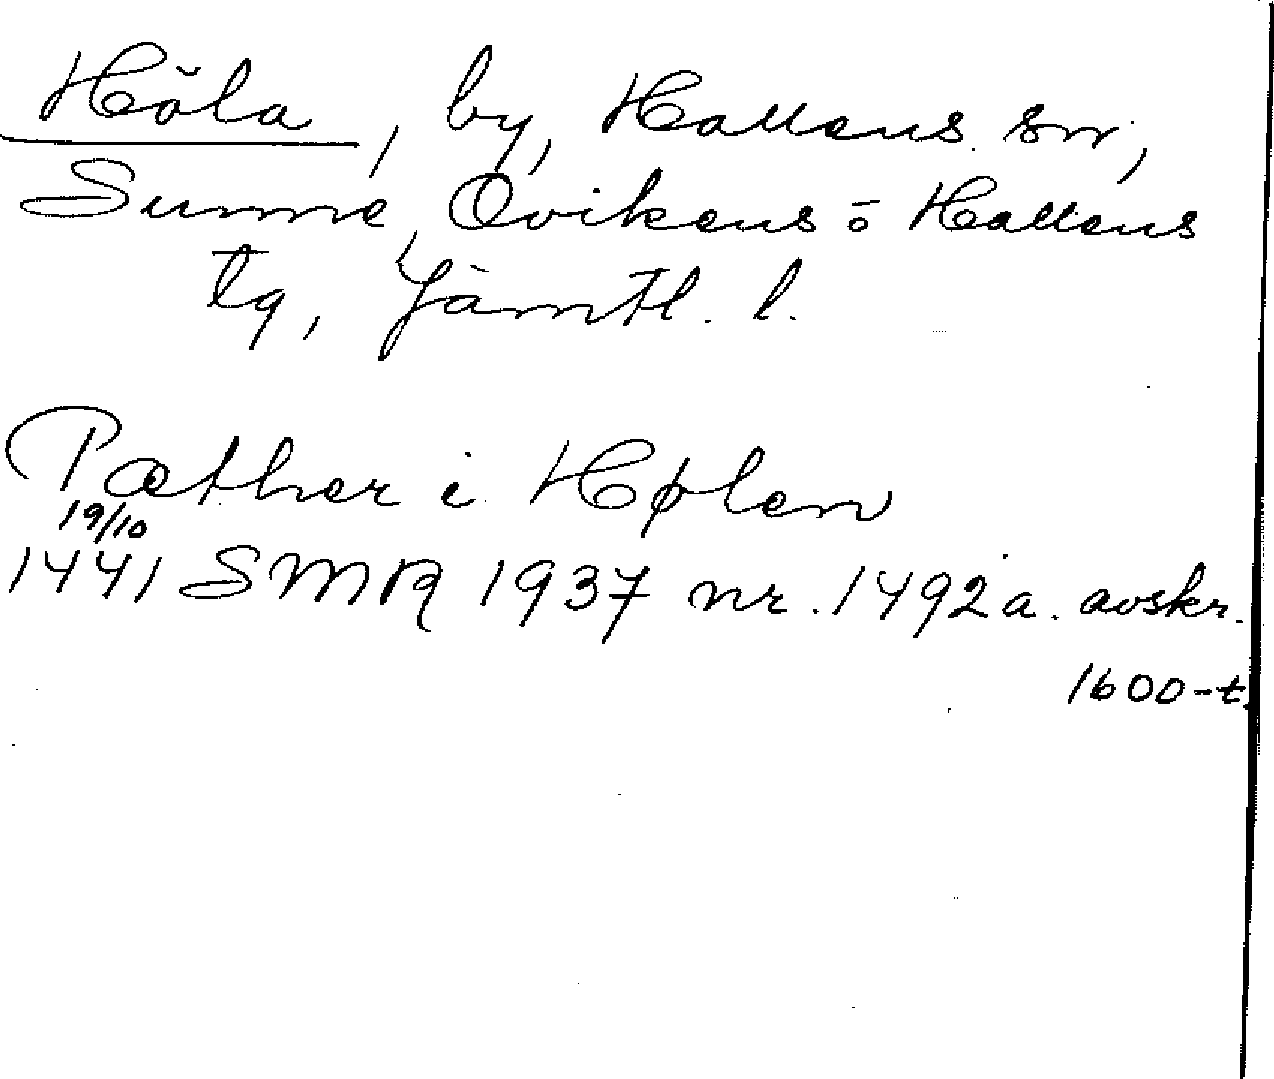 Höla, by, Hallens sn,
Sunne, Ovikens o Hallens
tg, Jämtl. l.
Pæther i Hølen
19/10
1441 SMR 1937 nr. 1492a. avskr.
1600-t.